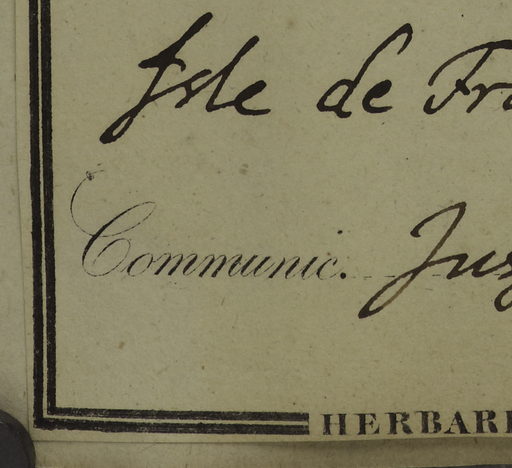 Isle de Fra
Communic. Jus
HERBARI